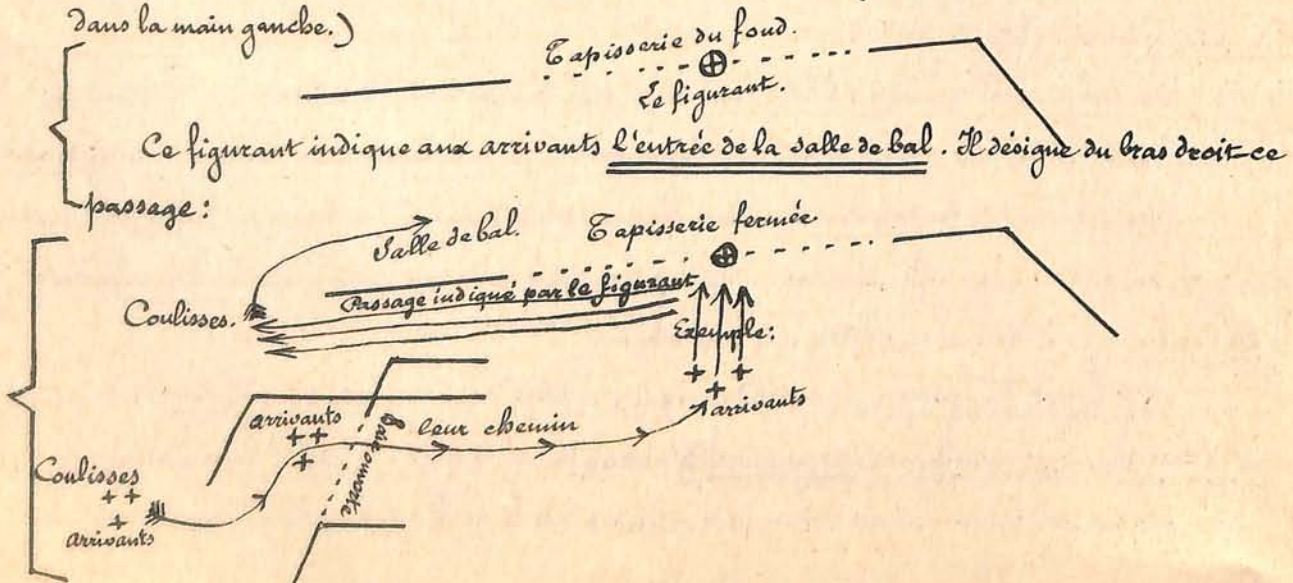 dans la main gauche.)
Tapisserie du fond.
Le figurant.
Ce figurant indique aux arrivants l'entrée de la salle de bal. Il désigne du bras droit ce
passage:
Salle de bal.
Tapisserie fermée
Passage indiqué par le figurant
Coulisses.
Exemple:
arrivants
arrivants
Baie ouverte
leur chemin
Coulisses
arrivants